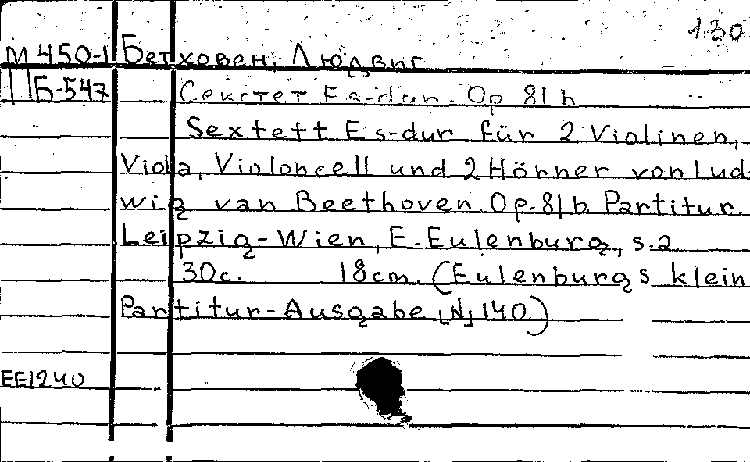 130
М 450-1 Бетховен, Людвиг
П Б-547 Секстет Es-dur. Op 81b
Sextett Es-dur für 2 Violinen,
Viola, Violoncell und 2 Hörner von Lud-
wig van Beethoven. Op. 81b. Partitur.
Leipzig-Wien, E. Eulenburg, s.a.
30c. 18cm. (Eulenburgs klein
Partitur-Ausgabe, N 140)
EE1240